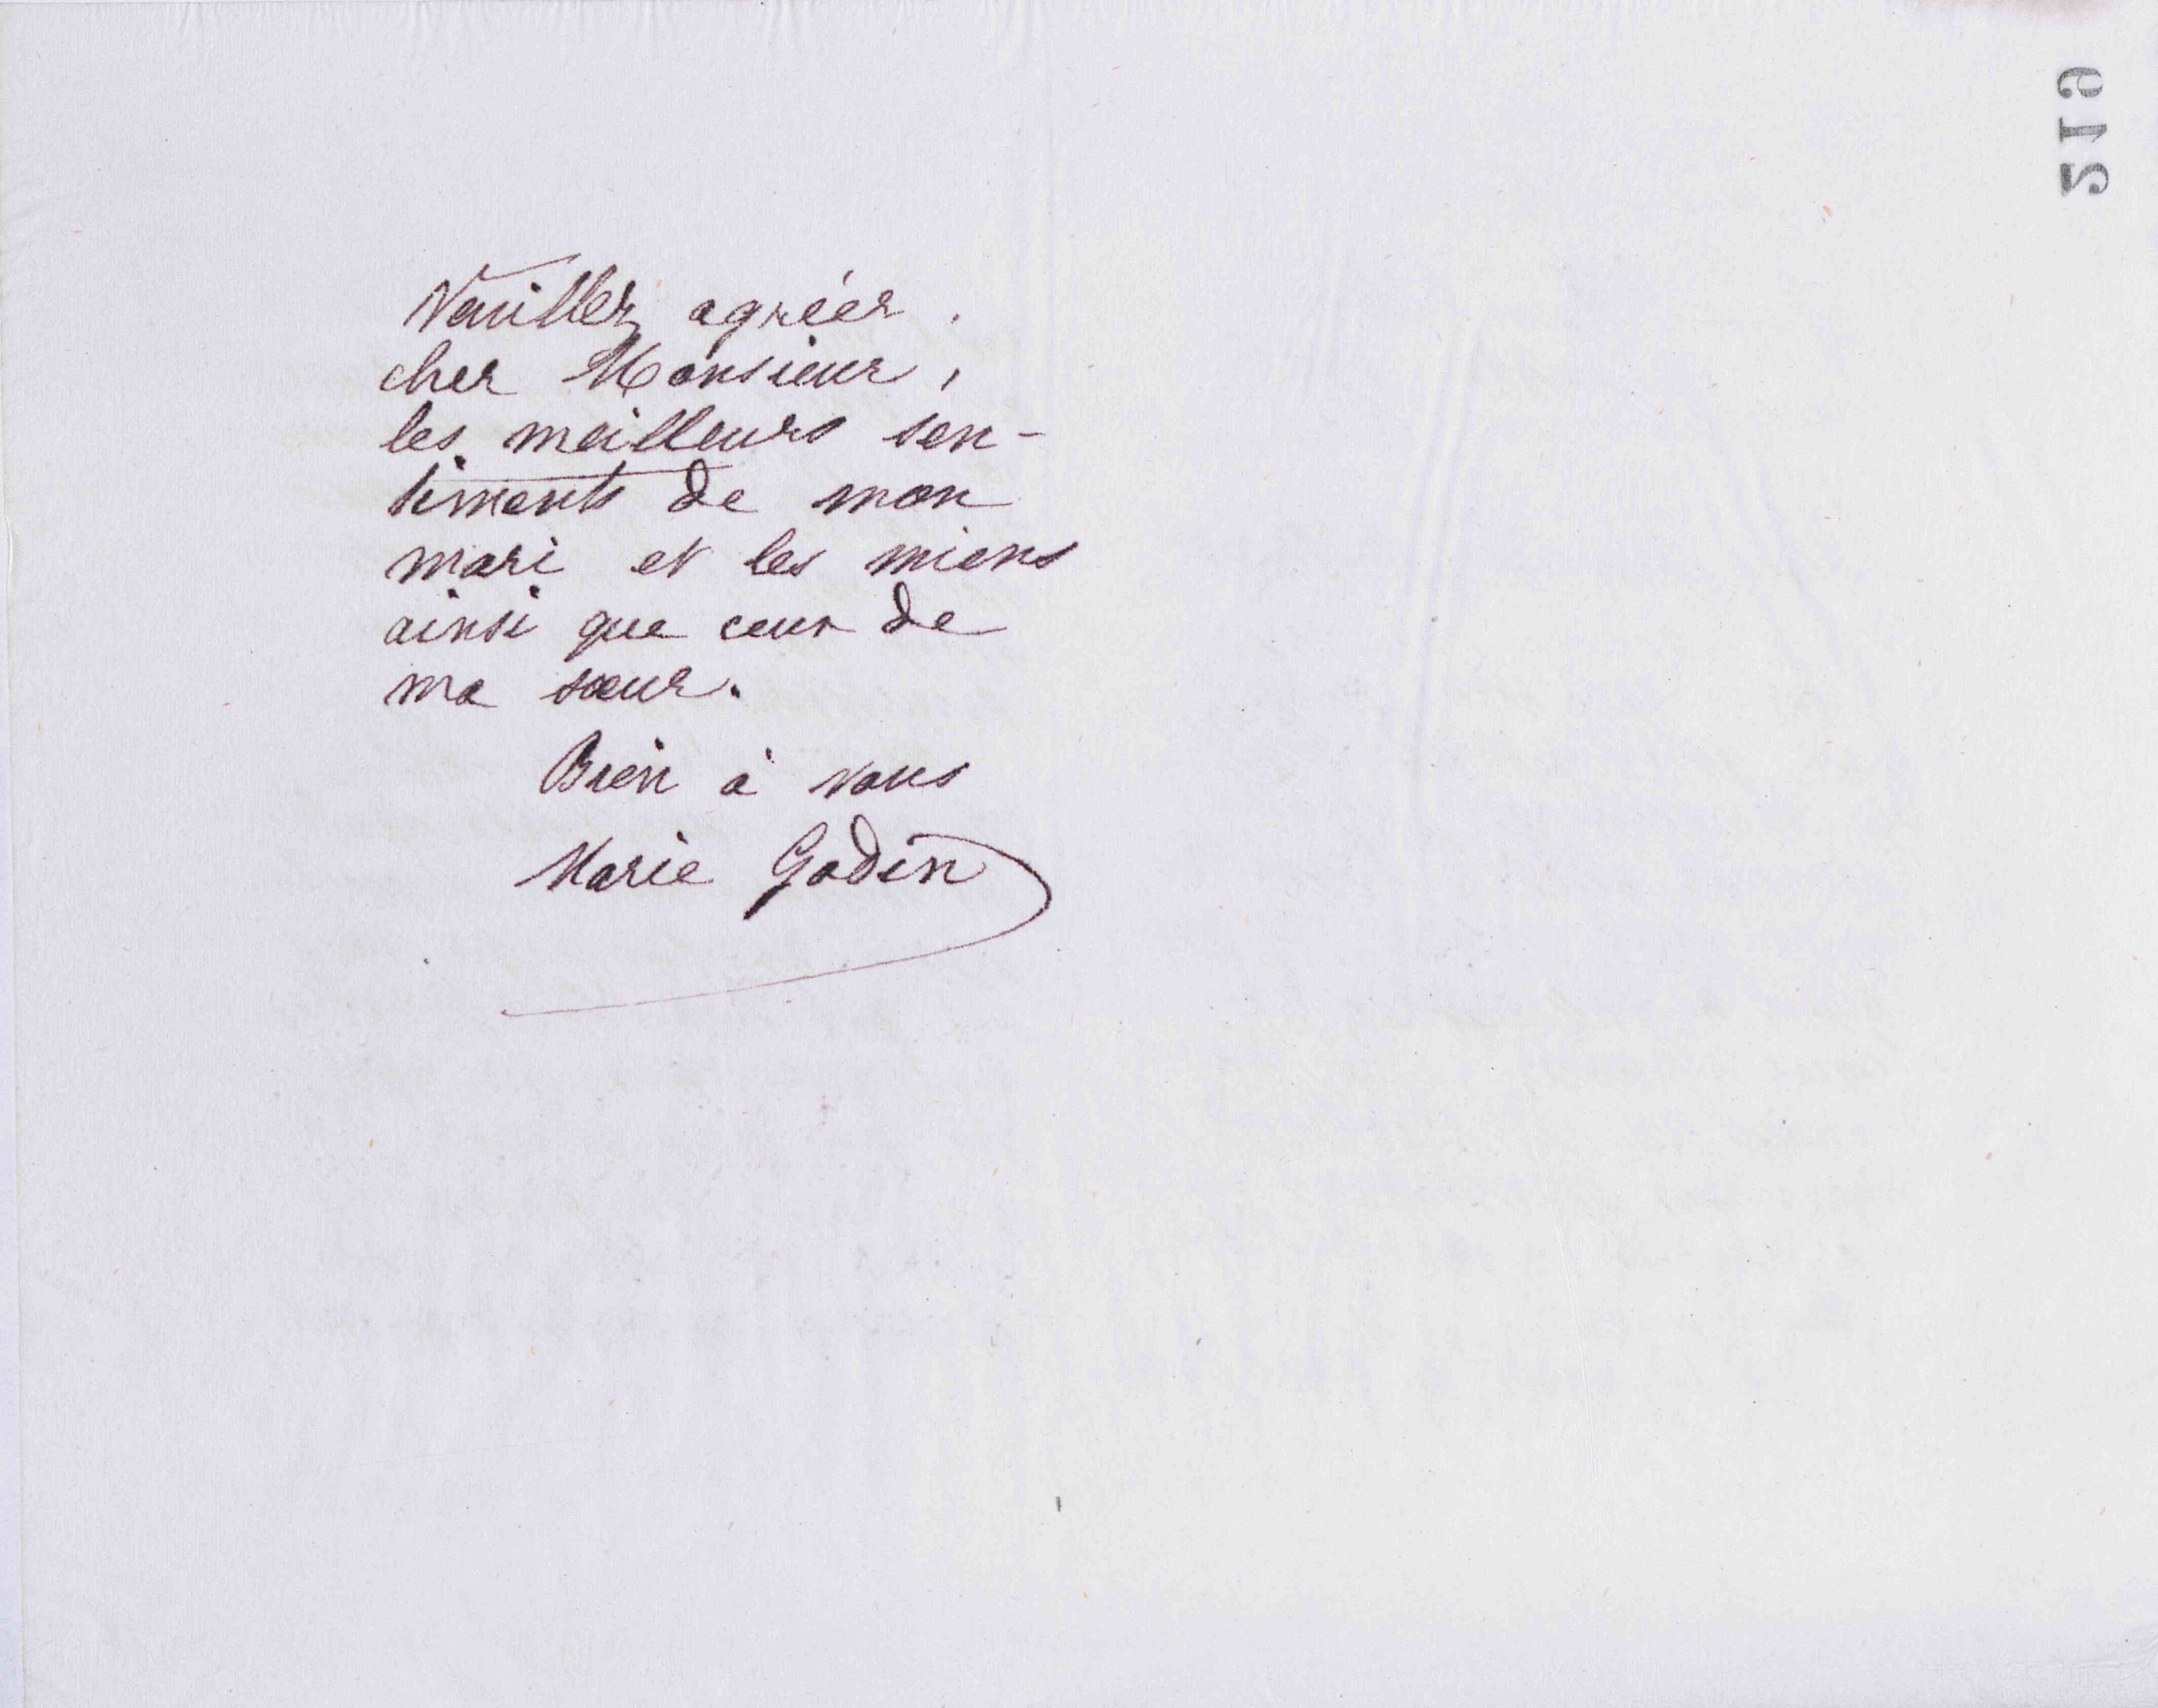 Veuillez agréer,
cher Monsieur,
les meilleurs sen-
timents de mon
mari et les miens
ainsi que ceux de
ma sœur.
Bien à vous
Marie Godin
219